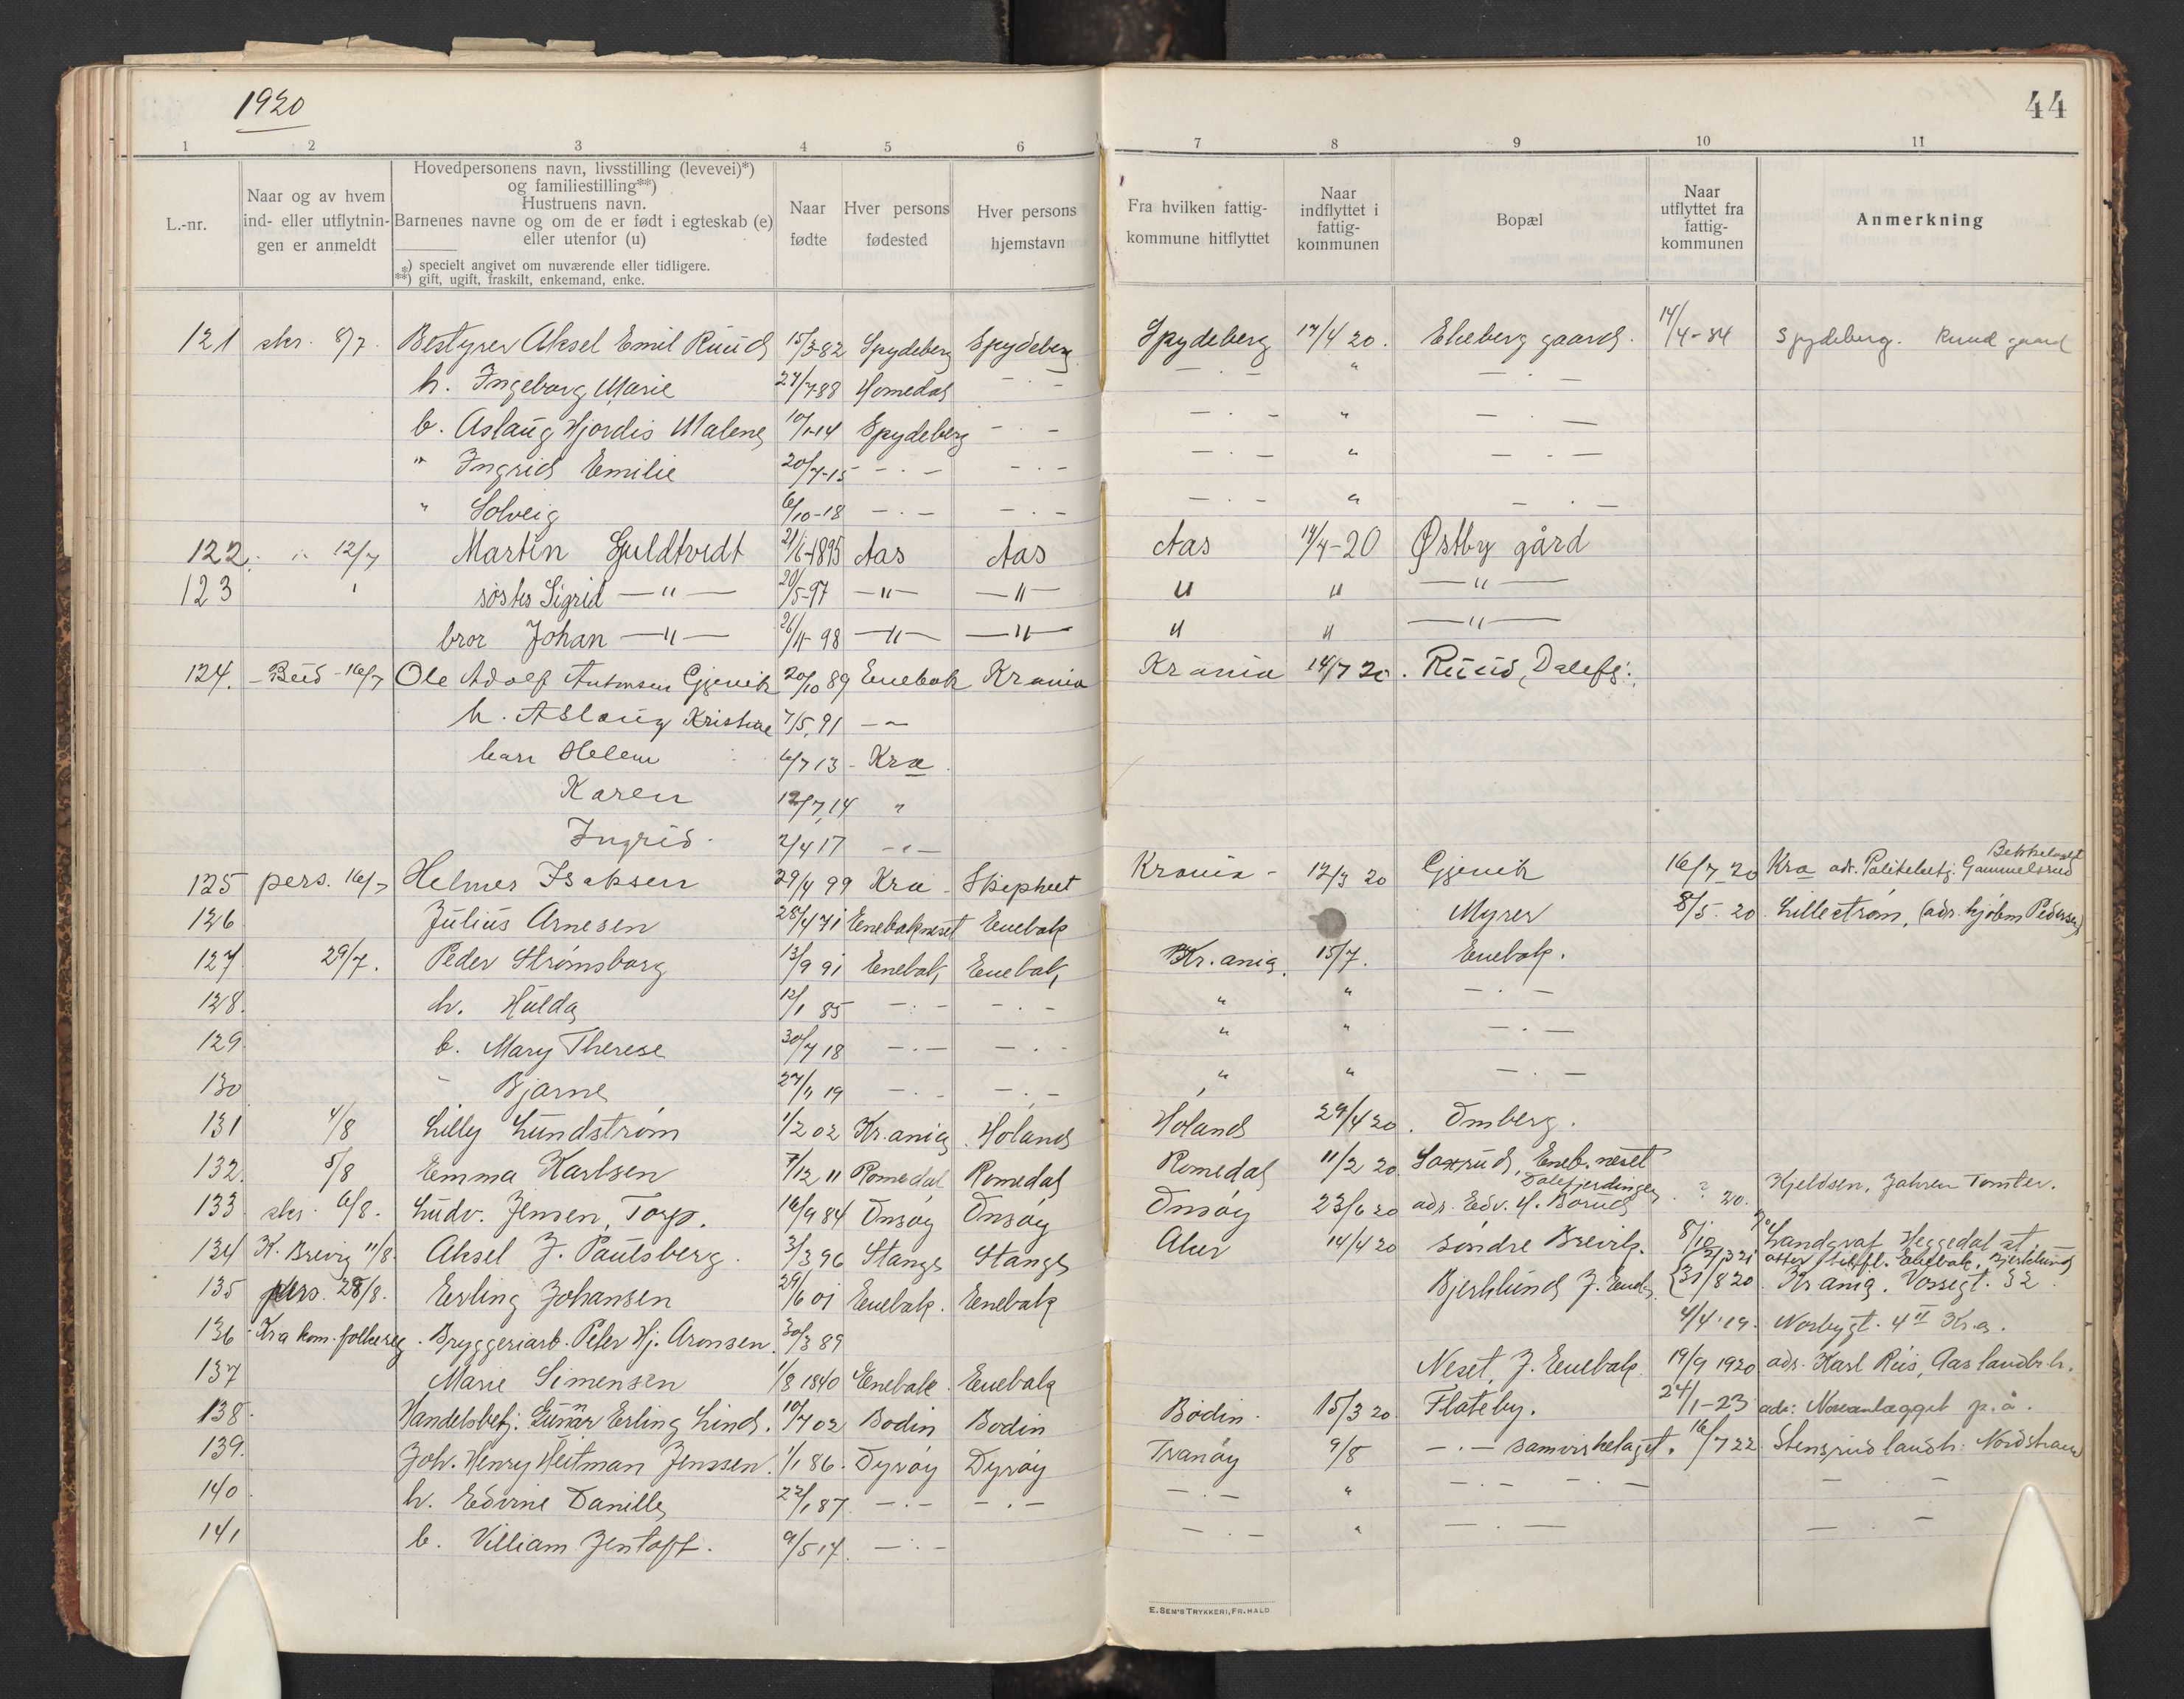 1920
44
1 2 3 4 5 6 7 8 9 10 11
L.-nr.
Naar og av hvem
ind- eller utflytnin-
gen er anmeldt
Hovedpersonens navn, livsstilling (levevei)*)
og familiestilling**)
Hustruens navn.
Barnenes navne og om de er født i egteskab (e)
eller utenfor (u)
*) specielt angivet om nuværende eller tidligere.
**) gift, ugift, fraskilt, enkemand, enke.
Naar
fødte
Hver persons
fødested
Hver persons
hjemstavn
Fra hvilken fattig-
kommune hitflyttet
Naar
indflyttet i
fattig-
kommunen
Bopæl
Naar
utflyttet fra
fattig-
kommunen
Anmerkning
121 skr. 8/7. Bestyrer Aksel Emil Ruud 15/3-82 Spydeberg Spydeberg Spydeberg 14/4 20. Ekeberg gaard. 14/4-84 Spydeberg. Ruud gaard
h. Ingeborg Marie 24/7-88 Homedal - . - - . - " - . -
b. Aslaug Hjordis Malene 10/1-14 Spydeberg - . - - . - " - . -
" Ingrid Emilie 20/7-15 - . - - . - - . - " - . -
" Solveig 6/10-18 - . - - . - - . - " - . -
122. " 12/7 Martin Guldtvedt 21/6-1895 Aas Aas Aas 14/4-20 Østby gård
123 " søster Sigrid — " — 20/5-97 — " — — " — " " — " —
bror Johan — " — 26/11-98 — " — — " — " " — " —
124. - Bud - 16/7 Ole Adolf Antonsen Gjenvik 20/10 89 Enebak Krania Krania 14/7 20. Ruud, Dalefj:
h. Aslaug Kristine 7/5, 91 - -
barn Helen 6/7 13 - Kra
Karen 12/7, 14 "
Ingrid. 2/4 17 - " -
125 pers. 16/7 Helmer Isaksen 29/4 99 Kra - Skiphvet Krania - 12/3 20 Gjenvik 16/7 20 Kra adr. Politibetj. Gammelsrud
Bekkelaget
126 Julius Arnesen 28/4 71 Enebakneset Enebak Myrer 8/5. 20. Lillestrøm, (adr. Hjolm Pedersen)
127 29/7. Peder Strømsborg 13/9 91 Enebak, Enebak, Kr.ania. 15/7. Enebak.
128. h. Hulda 12/1 85 - . - - . - " " - . -
129 b. Mary Therese 30/7 18 - . - - . - " " - . -
130 " Bjarne 27/11 19 - . - - . - " " - . -
131 4/8 Lilly Lundstrøm 1/2 02 Kr.ania Høland Høland 29/4 20. Omberg.
132. 5/8 Emma Karlsen 7/12 11 Romedal Romedal Romedal 11/2 20 Saxrud, Eneb.neset
133 skr. 6/8. Ludv. Jensen, Torp. 16/9 84 Onsøy Onsøy Onsøy 23/6 20 adr. Edv. H. Børud ? 20. Kjeldsen, Jahren Tomter.
Dalefjerdingen
134 K. Brevig 11/8. Aksel J. Paulsberg. 3/3, 96 Stange Stange Aker 14/4 20 søndre Brevik. 8/10 Landgraf Heggedal st.
2/3 21 atter tilfl. Enebak, Bjerklund
135 pers. 28/8. Erling Johansen 29/6 01 Enebak. Enebak Bjerklund J. Eneb. 31/8 20 Krania. Vossegt. 32.
136 Kra kom. folkereg. Bryggeriarb. Peter Hj. Aronsen. 30/3 89 4/4 '19. Norbygt. 4 II Kr.a.
137 Marie Simensen 1/8 1840 Enebak. Enebak Neset, J. Enebak 19/9 1920 adr. Karl Riis, Aas landbr.h.
138. Handelsbetj. Gunnar Erling Lind. 10/7 02 Bodin Bodin Bodin. 15/3 20 Flateby. 24/1-23 adr: p.å.
139. Joh. Henry Heitman Jenssen. 1/1 86. Dyrøy Dyrøy Tranøy 9/8 - . - samvirkelaget. 16/7 22 Stensrud landh: Nordstrand
140. h. Edvine Danille 22/1 87. - . - - . - - . - " - . - . - - . -
141 b. Villiam Jentoft. 9/5 14. - . - - . - " - . - - . -
E. SEM'S TRYKKERI, FR.HALD